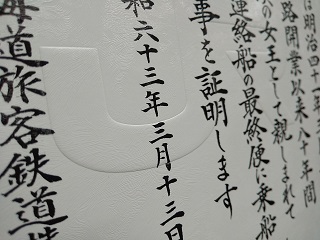 は明治四十一年三
路開業以来八十年間
の女王として親しまれて
連絡船の最終便に乗船
事を証明します
和六十三年三月十三日
海道旅客鉄道